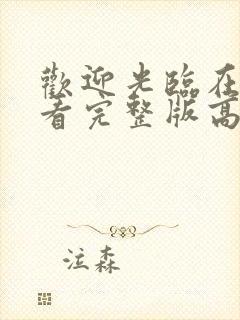 歡迎光臨在
看完整版高
泣森